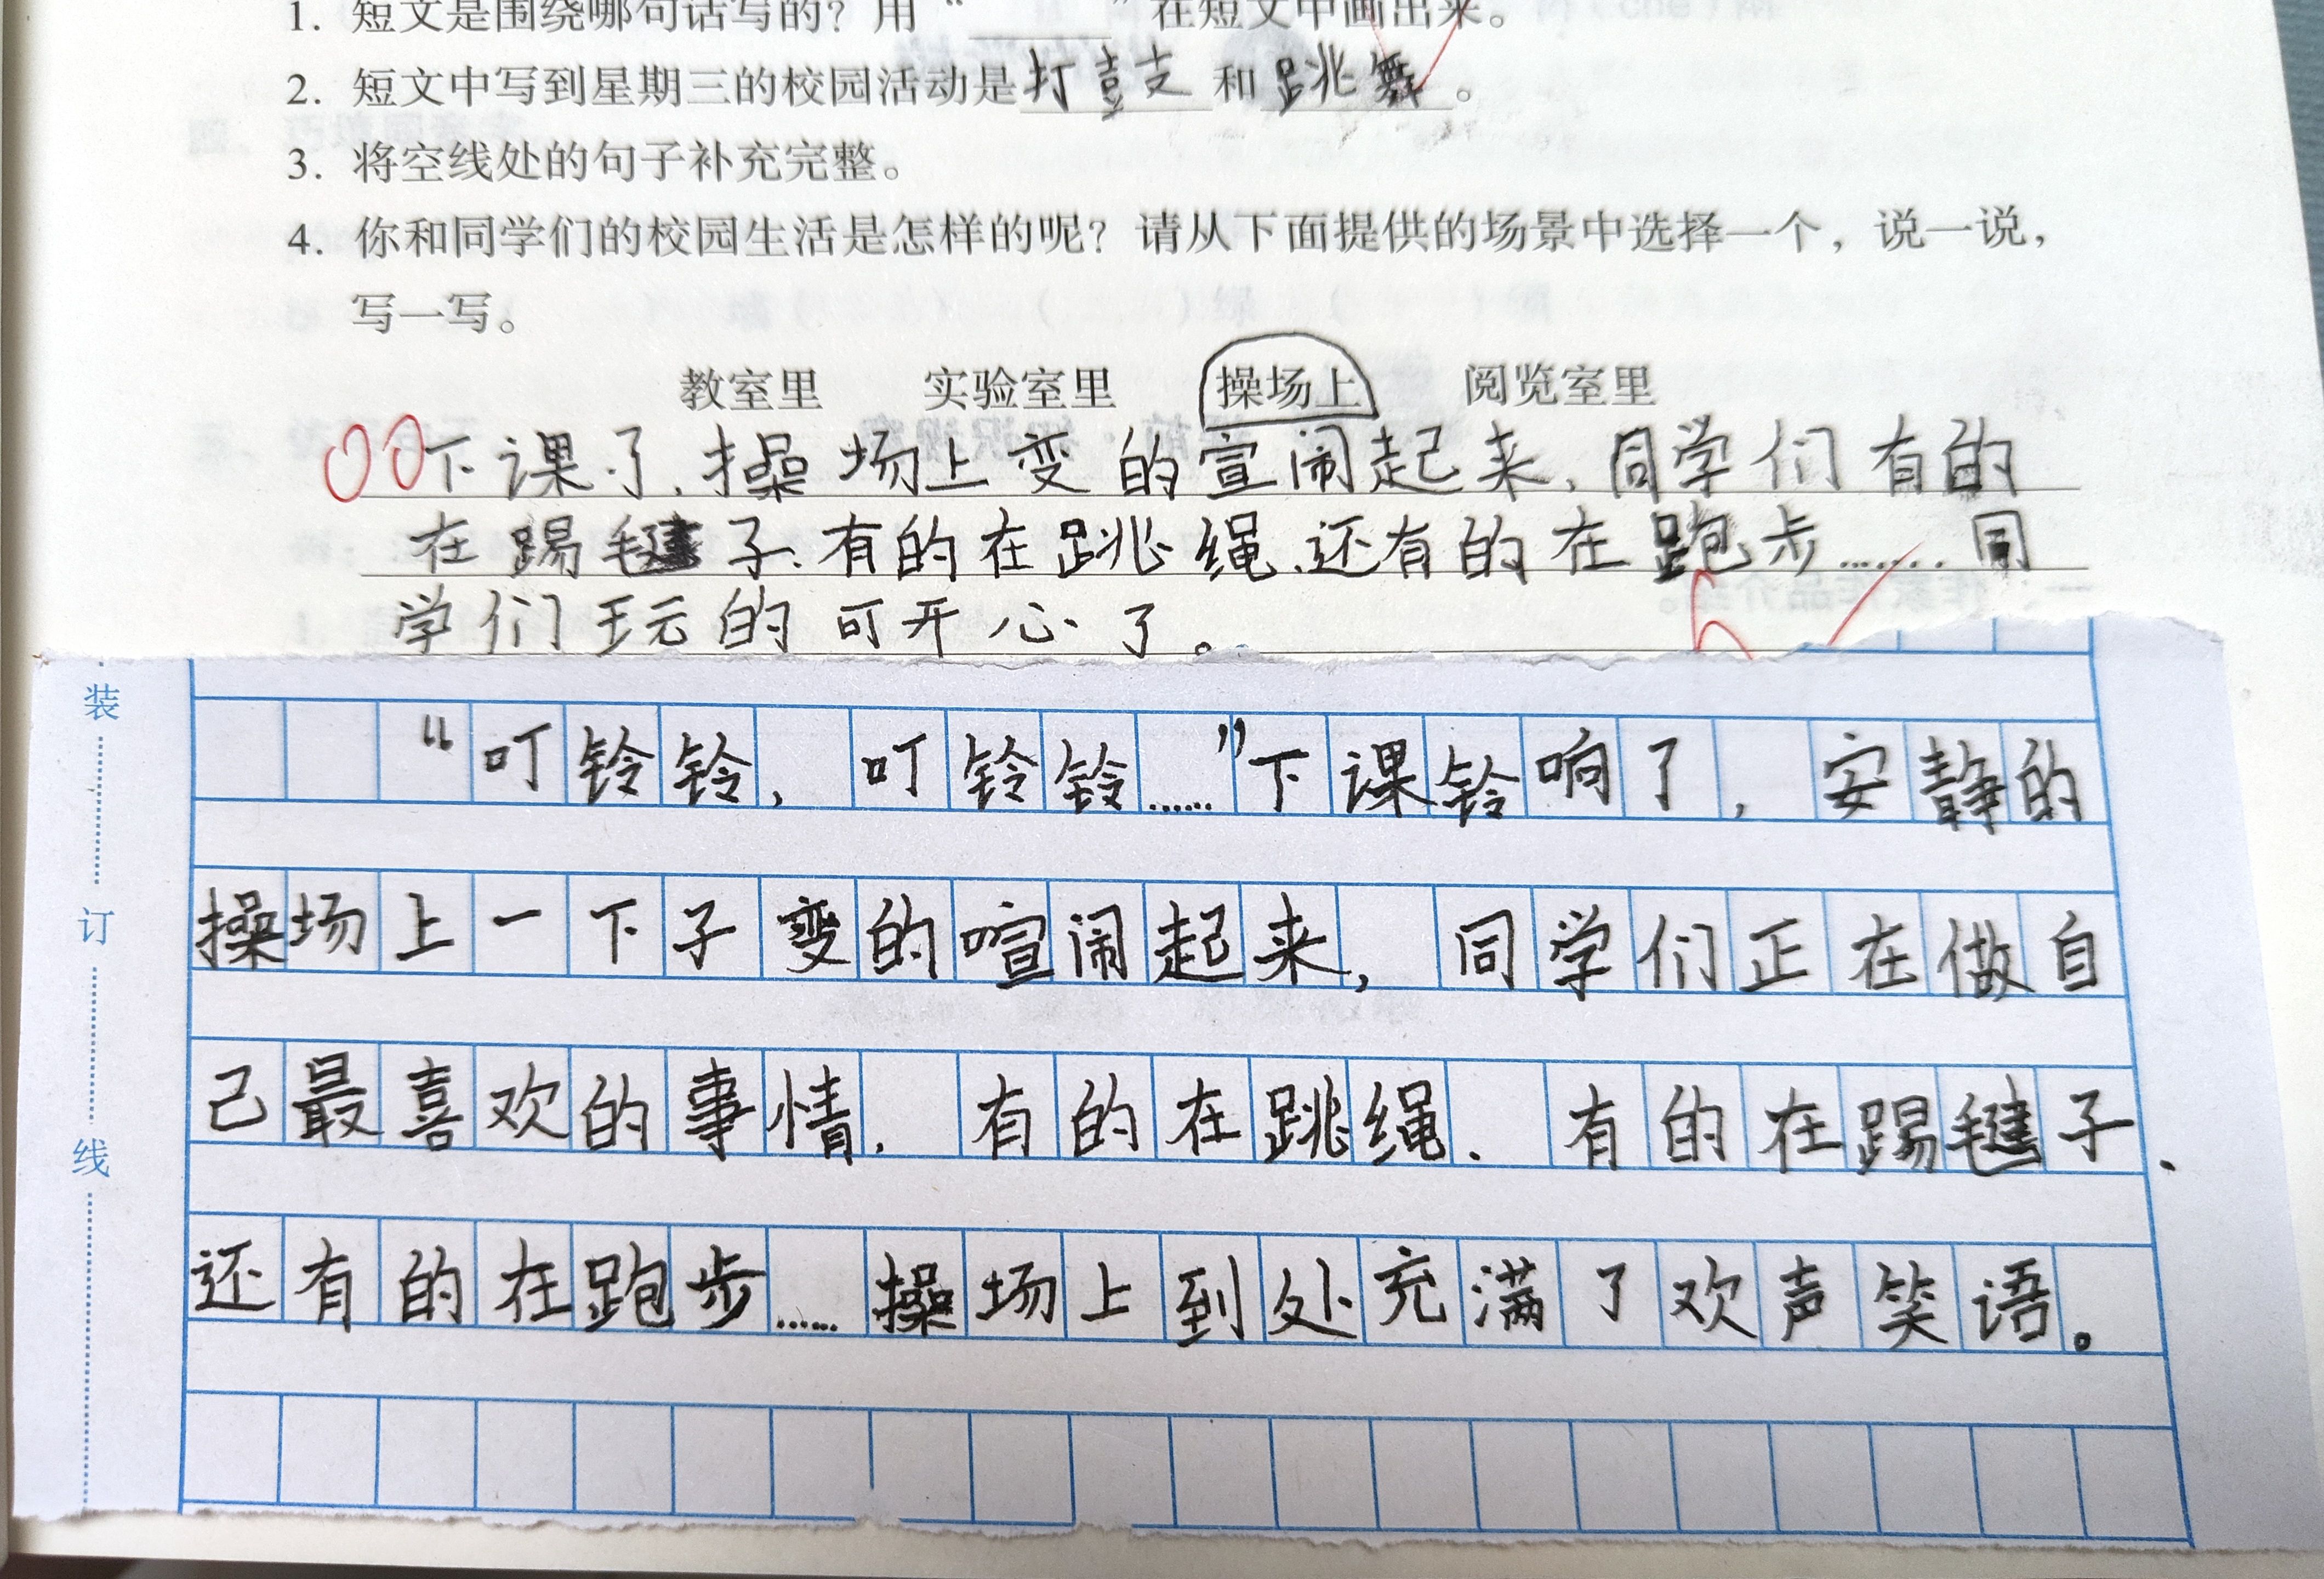 1. 短文是围绕哪句话写的？用“______”在短文中画出来。
2. 短文中写到星期三的校园活动是打鼓和跳舞。
3. 将空线处的句子补充完整。
4. 你和同学们的校园生活是怎样的呢？请从下面提供的场景中选择一个，说一说，
写一写。
教室里 实验室里 操场上 阅览室里
下课了，操场上变的宣闹起来，同学们有的
在踢毽子、有的在跳绳、还有的在跑步……同
学们玩的可开心了。
“叮铃铃，叮铃铃……”下课铃响了，安静的
操场上一下子变的喧闹起来，同学们正在做自
己最喜欢的事情，有的在跳绳、有的在踢毽子、
还有的在跑步……操场上到处充满了欢声笑语。
装
订
线